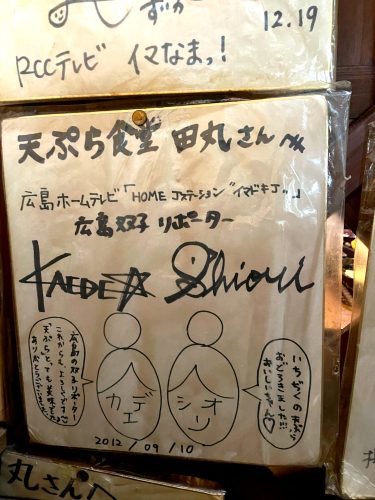 ずか
12.19
RCCテレビ イマなまっ!
天ぷら食堂 田丸さんへ
広島ホームテレビ「HOME Jステーション"イマドキJ"」
広島双子リポーター
KAEDE☆ Shiori
広島の双子リポーター
これからも、よろしくです♪
天ぷら、とっても美味でした
ありがとうございました。
カエデ
シオリ
いちぢくの天ぷら
おどろきました!!!
おいしいちゃん♡
2012/09/10
丸さんへ